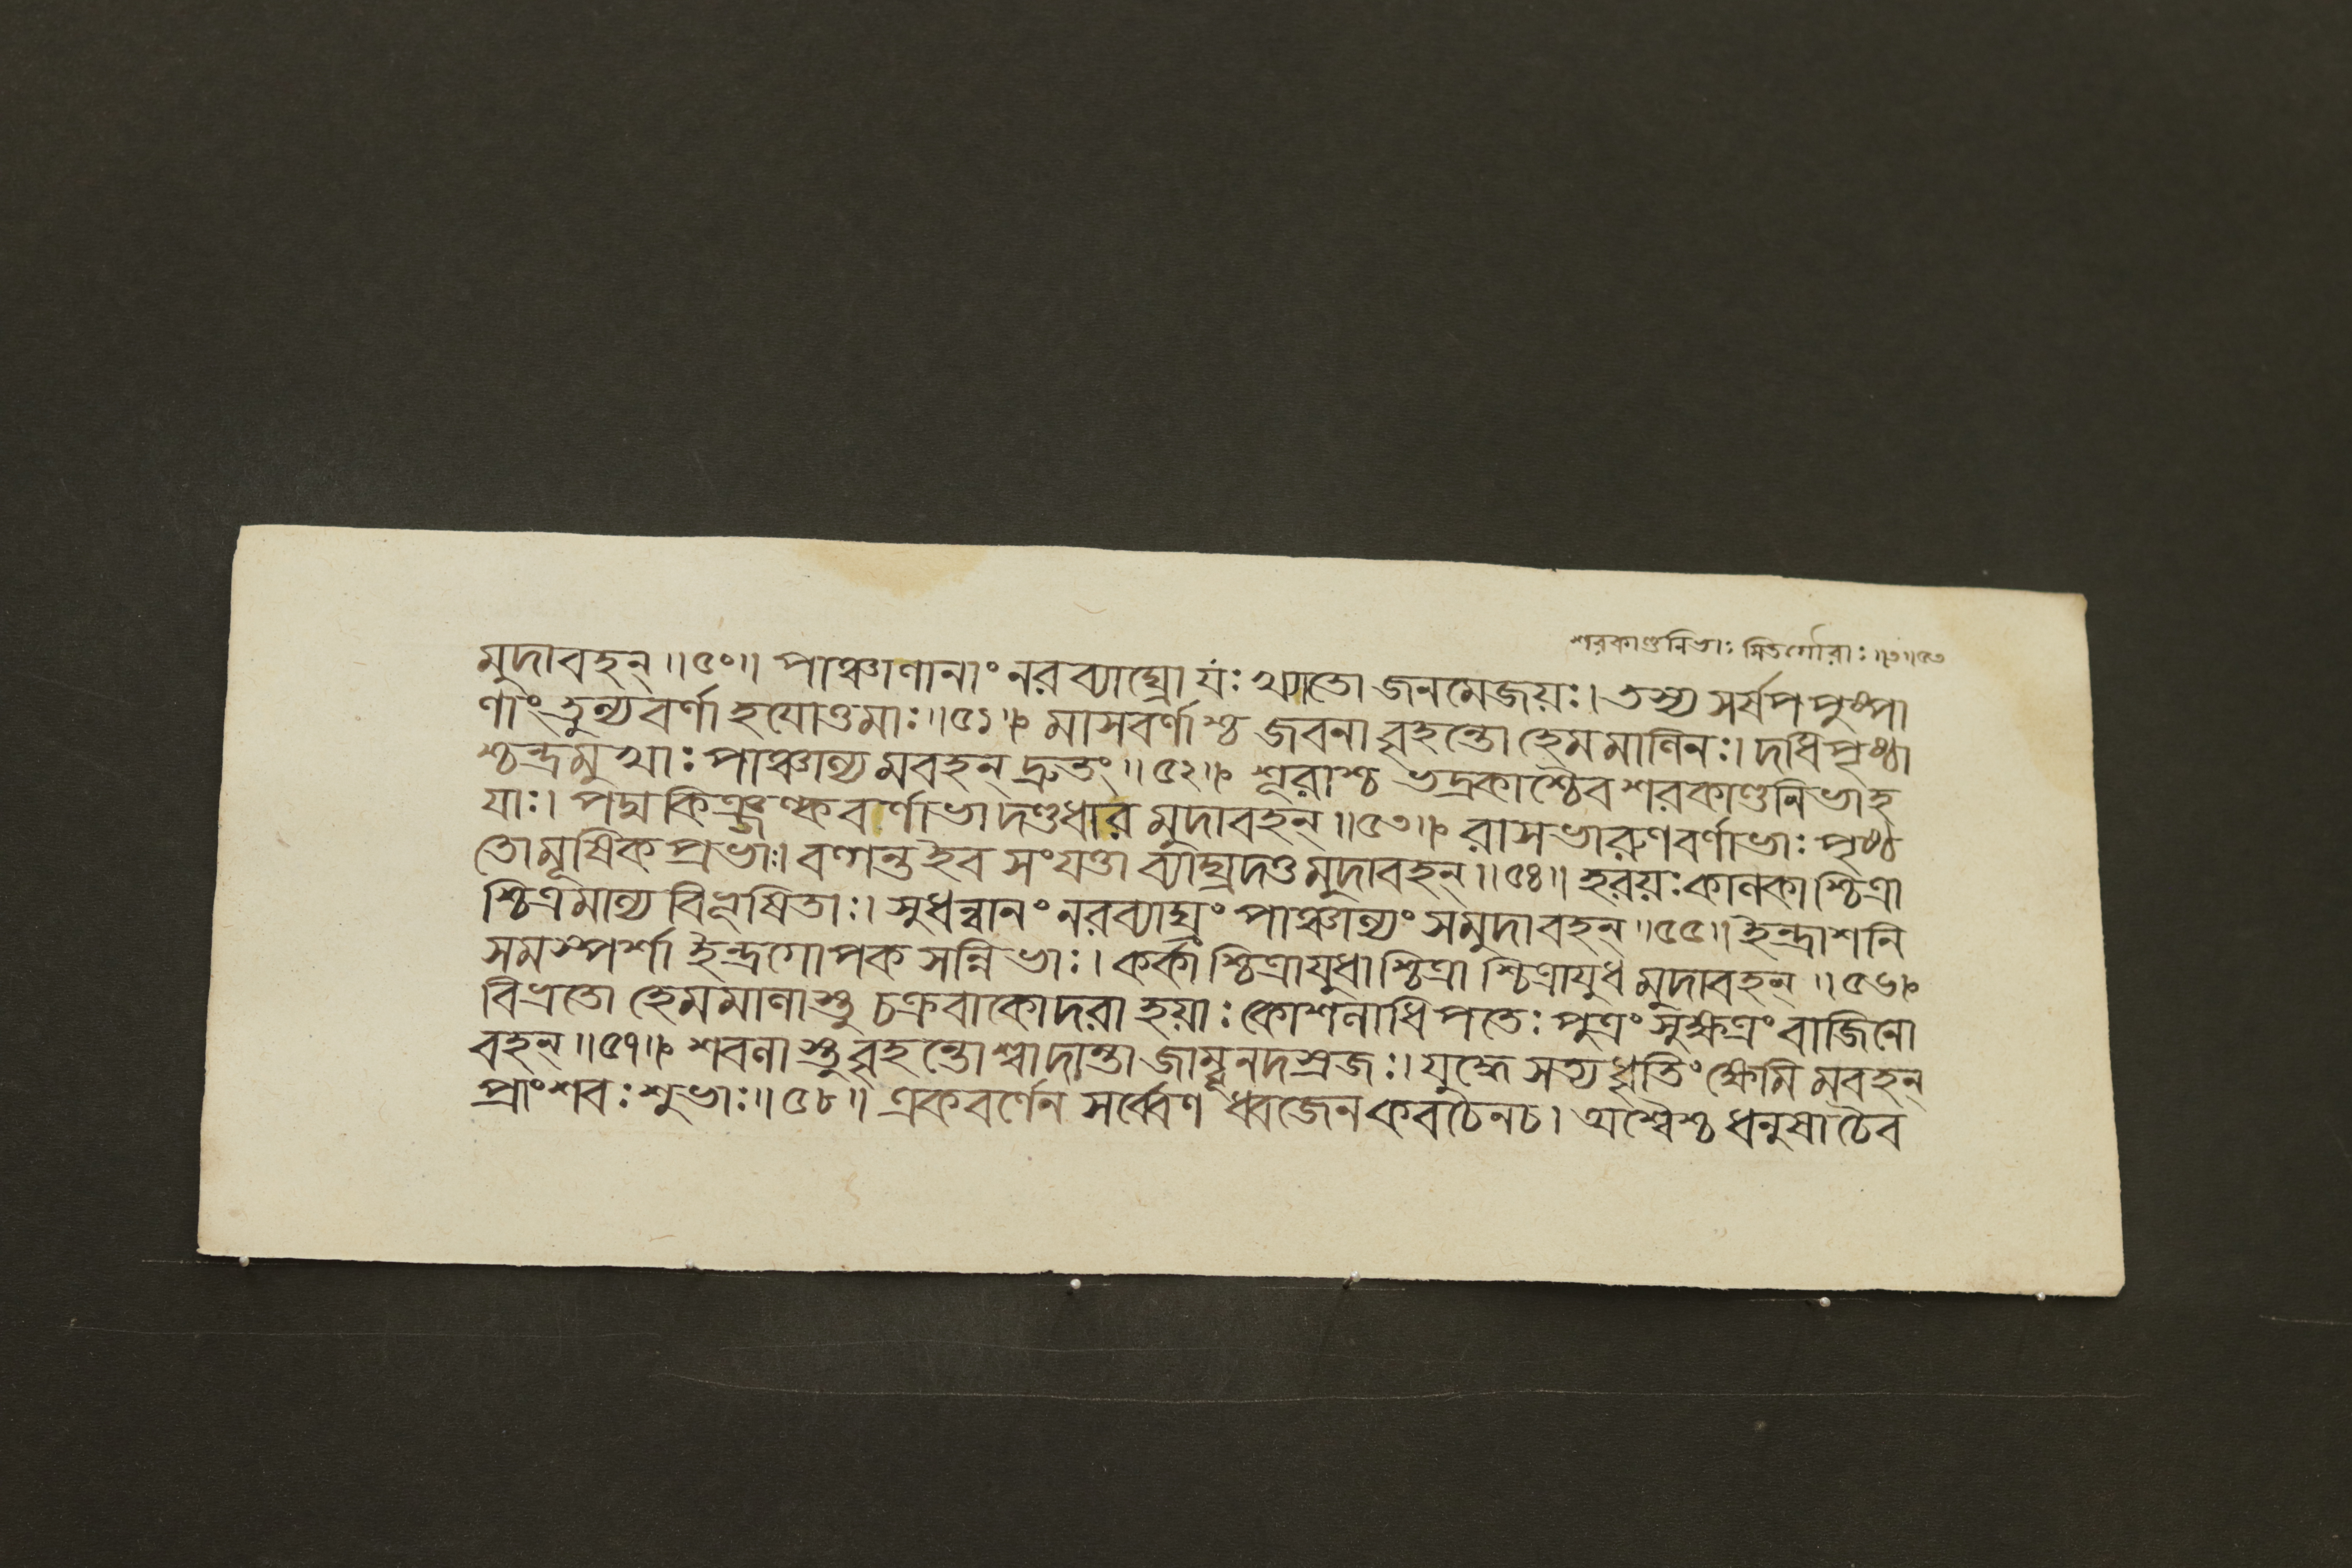 শরকাণ্ডনিভাঃ সিতগৌরাঃ॥৩॥৫৩
মুদাবহন্॥৫০॥ পাঞ্চালানাং নরব্যাঘ্রো যঃ খ্যাতো জনমেজয়ঃ। তস্য সর্ষপপুষ্পা
ণাং তুল্যবর্ণা হযোত্তমাঃ॥৫১॥ মাসবর্ণাশ্চ জবনা বৃহন্তো হেমমালিনঃ। দধিপৃষ্ঠা
শ্চন্দ্রমুখাঃ পাঞ্চাল্যমবহন্ দ্রুতং॥৫২॥ শূরাশ্চ ভদ্রকাশ্চৈব শরকাণ্ডনিভা হ
যাঃ। পদ্মকিঞ্জল্কবর্ণাভা দণ্ডধারমুদাবহন্॥৫৩॥ রাসভারুণবর্ণাভাঃ পৃষ্ঠ
তো মূষিকপ্রভাঃ। বল্গন্ত ইব সংযত্তা ব্যাঘ্রদত্তমুদাবহন্॥৫৪॥ হরয়ঃ কালকাশ্চিত্রা
শ্চিত্রমাল্যবিভূষিতাঃ। সুধন্বানং নরব্যাঘ্রং পাঞ্চাল্যং সমুদাবহন্॥৫৫॥ ইন্দ্রাশনি
সমস্পর্শা ইন্দ্রগোপকসন্নিভাঃ। কর্কাশ্চিত্রাযুধাশ্চিত্রাশ্চিত্রাযুধমুদাবহন্॥৫৬॥
বিভ্রতো হেমমালাস্তু চক্রবাকোদরা হয়াঃ কোশলাধিপতেঃ পুত্রং সুক্ষত্রং বাজিনো
বহন্॥৫৭॥ শবলাস্তু বৃহন্তোশ্বা দান্তা জাম্বূনদস্রজঃ। যুদ্ধে সত্যধৃতিং ক্ষেমিমবহন্
প্রাংশবঃ শুভাঃ॥৫৮॥ একবর্ণেন সর্ব্বেণ ধ্বজেন কবচেন চ। অশ্বৈশ্চ ধনুষা চৈব